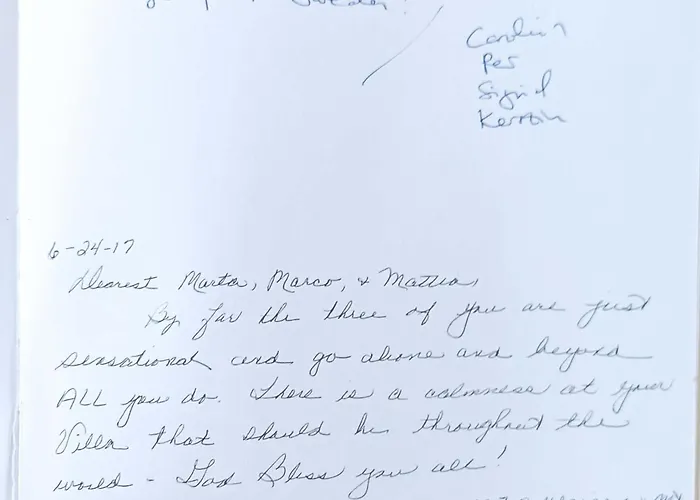 Sweden!
Per
Sigrid
Kerstin
6-24-17
Dearest Marta, Marco, & Mattia,
By far the three of you are just
sensational and go above and beyond
ALL you do. There is a calmness at your
Villa that should be throughout the
world - God Bless you all!